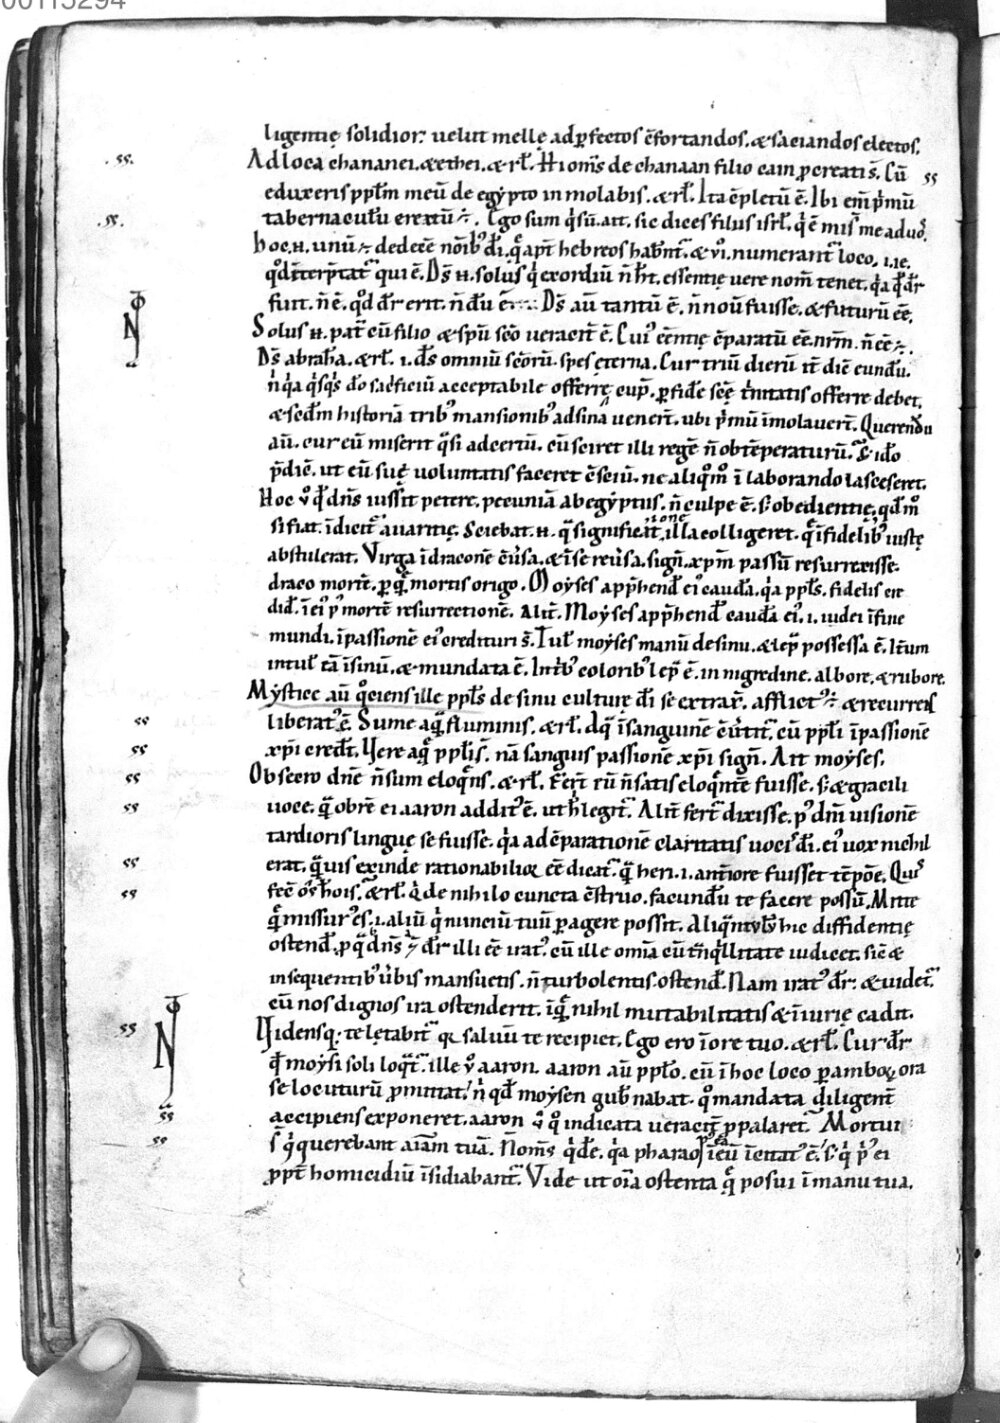 00115294
ligentię solidior: uelut melle ad ꝑfectos ꝯfortandos. & saciandos electos.
Ad loca chananei. & ethei. & rł. Hi om̅s de chanaan filio cam ꝓcreati s̅. Cū
eduxeris pplm̅ meū de egypto inmolabis. & rł. Ita ꝯpletū ē. Ibi em̅ p̱mū
tabernaculū erectū ÷. Ego sum q̇ sū. ait. sic dices filiis isrł. q̇ ē misit me ad uos.
hoc .N. unū ÷ de decē noib; dī. q̅ apt̅ hebreos habn̅t᷑. & VI. numerant᷑ loco .i. ie.
qd̅ int̅p̅tat᷑ qui ē. Ds̅ .N. solus q̇ exordiū n̅ ht̅. essentię uere nom̅ tenet. q̇a q̅ dr̅
fuit. n̅ ē. qd̅ dr̅ erit. n̅ dū ē. Ds̅ aū tantū ē. n̅ nou̅ fuisse. & futurū eē.
Solus .N. pat̅ cū filio & spū sc̅o ueracit̅ ē. Cui᷒ eēntię ꝯparatū eē nr̅m. n̅ eē ÷.
Ds̅ abrah̅a. & rł. .i. ds̅ omniū sc̅orū. spes eterna. Cur triū dierū it̅ diē eundū.
n̅ q̇a q̇sq̇s dō sacrificiū acceptabile offerre cup̅. ꝑ fidē sc̅ę ṫnitatis offerre debet.
& sedm̅ historiā trib; mansionib; ad sina uener̅t. ubi ṗmū īmolauer̅t. Querendū
aū. cur eū miserit q̅si ad certū. cū sciret illi regē n̅ obtēperaturū. S; idō
p̅diē. ut eū suę uoluntatis faceret ꝯsciū. ne aliqm̊ ī laborando lascesceret.
Hoc v̊ qd̅ dn̅s iussit petere. pecuniā ab egyptiis. n̅ culpę ē. s; obedientię. qd̅ m̊
si fiat. īdicit᷑ auaritię. Sciebat .N. q̅ significatione illa colligeret. q̅ īfidelib; iustę
abstulerat. Virga ī draconē ꝯu̅sa. & ī se reu̅sa. sign̅. xpm̅ passū resurrexisse.
draco mort̅. ꝑ q̅ mortis origo. Moyses app̅hend̅ ei᷒ caudā. q̇a ppl̅s. fidelis cre
did̅. ī ei᷒ p᷒ mortē resurrectionē. Alit̅. Moyses app̅hend̅ caudā ei᷒ .i. iudei ī fine
mundi. ī passionē ei᷒ credituri s̅. Tul̅ moyses manū de sinu. & lep̅ possessa ē. It̅um
intul̅ tā ī sinū. & mundata ē. In trib; colorib; lep̅ ē. in nigredine. albore. & rubore.
Mystice aū q̊ciens ille ppl̅s de sinu culturę dī se extrax̅. afflict᷒ ÷ & recurrens
liberat᷒ ē. Sume aq̅ fluminis. & rł. Aq̅ ī sanguinē ꝯu̅tit᷑. cū ppl̅i ī passionē
xp̅i cred̅t. Vere aq̅ ppl̅i s̅. nā sanguis passionē xp̅i sign̅. Ait moyses.
Obsecro dn̅e n̅ sum eloq̅ns. & rł.
uoce. q̅ obrē ei aaron addit᷒ ē. ut h̅ legit᷑. Alit̅ fert᷑ dixisse. p᷒ dn̅i uisionē
tardioris linguę se fuisse. q̇a ad ꝯparationē claritatis uocis dī. ei᷒ uox nichil
erat. q̅uis exinde rationabilior eē dicat᷑. q̅ heri .i. antiore fuisset tēpo̅e. Quis
fec̅ os hois. & rł. q̇ de nihilo cuncta ꝯstruo. facundū te facere possū. Mitte
q̅ missur᷒ es .i. aliū q̇ nunciū tuū ꝑagere possit. Aliq̅ntulū hic diffidentię
ostend̅. ꝓ q̅ dn̅s ÷ dr̅ illi eē irat᷒. cū ille om̅ia cū t̅nq̇llitate iudicet. sic &
insequentib; u̅bis mansuetis. n̅ turbolentis ostend̅. Nam irat᷒ dr̅. & uidet᷑.
cū nos dignos ira ostenderit. ī q̅ nihil mutabilitatis & īiurię cadit.
Vidensq; te lętabit᷑ qr saluū te recipiet. Ego ero ī ore tuo. & rł. Cur dr̅
qd̅ moysi soli loq̅t᷑. ille v̊ aaron. aaron aū pplo̅. cū ī hoc loco ꝑ amboꝝ ora
se locuturū ꝓmittat. n̅ qd̅ moysen gub̅nabat. q̊ mandata diligent̅
accipiens exponeret. aaron v̊ q̊ indicata ueracit̅ ꝓpalaret᷑. Mortui
s̅ q̇ querebant aīam tuā. N̅ om̅s q̇dē. q̇a pharao
ppt̅ homicidiū īsidiabant᷑. Vide ut oīa ostenta q̅ posui ī manu tua.